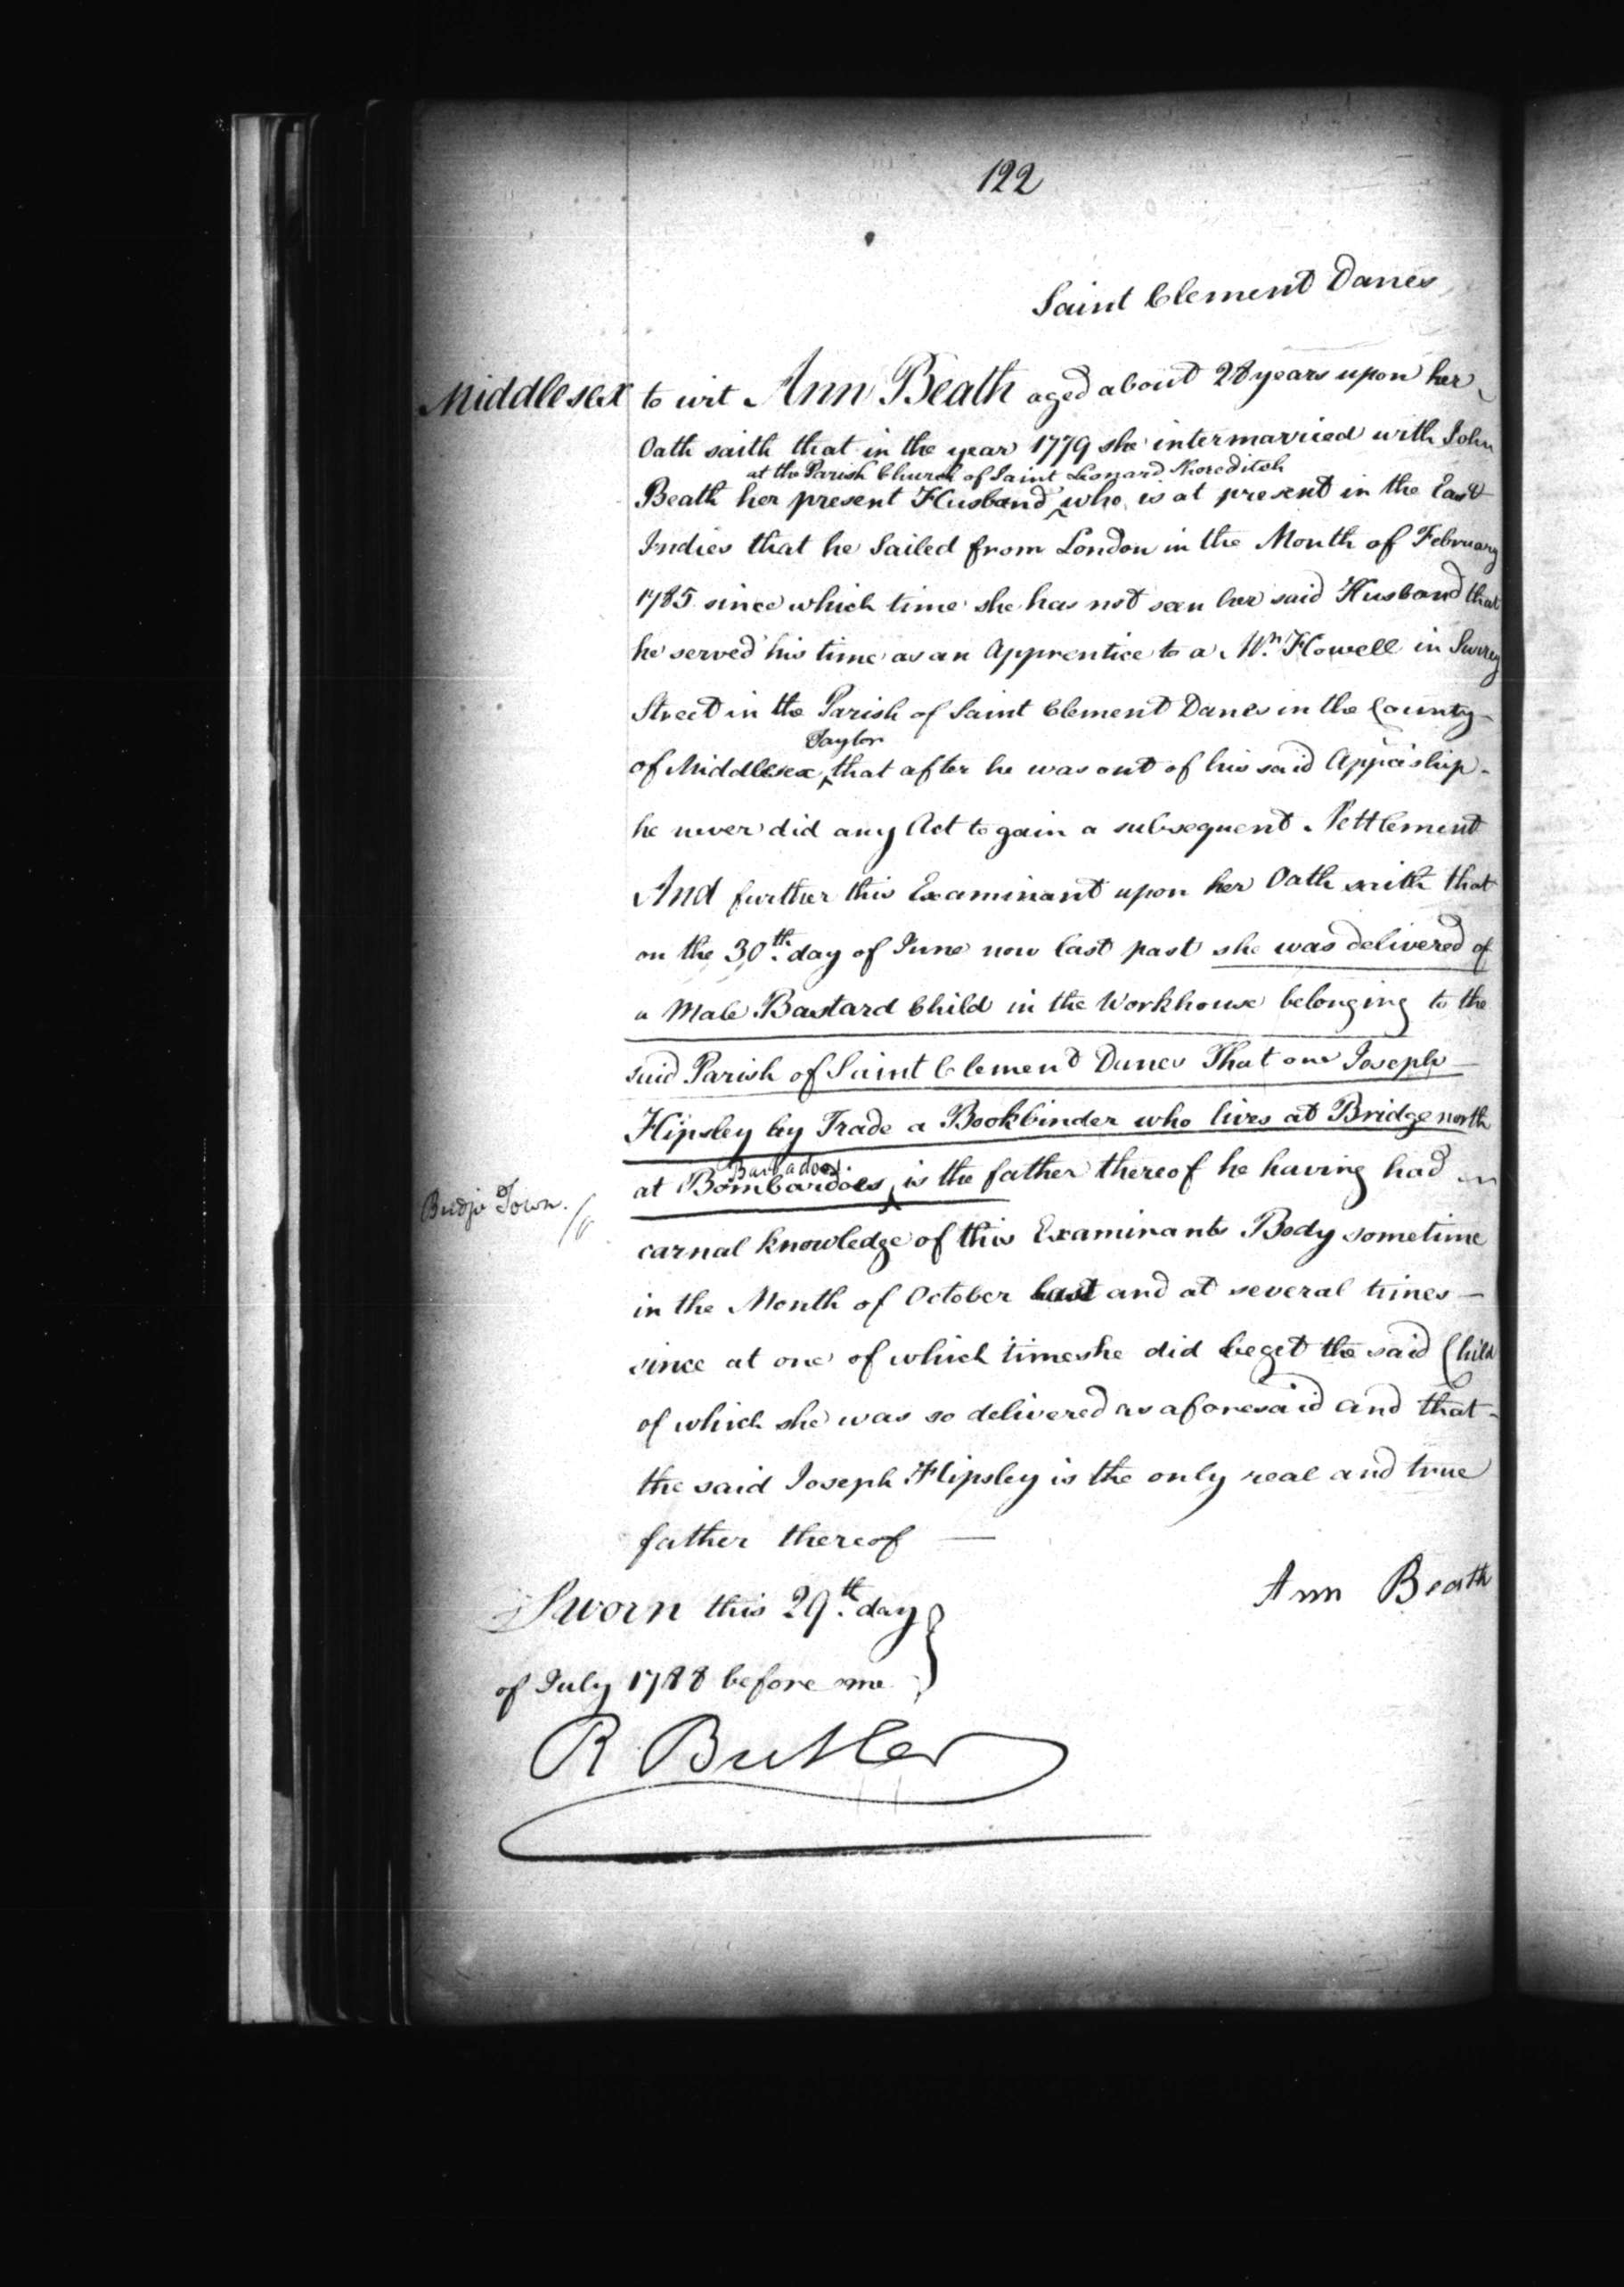 122
Saint Clement Danes
Middlesex to wit Ann Beath aged about 28 years upon her
Oath saith that in the year 1779 she intermarried with John
at the Parish Church of Saint Leonard Shoreditch
Beath her present Husband ‸ who is at present in the East
Indies that he Sailed from London in the Month of February
1785 since which time she has not seen her said Husband that
he served his time as an Apprentice to a Mr. Howell in Surrey
Street in the Parish of Saint Clement Danes in the County
Taylor
of Middlesex ‸ that after he was out of his said Appiship
he never did any Act to gain a subsequent Settlement
And further this Examinant upon her Oath saith that
on the 30th. day of June now last past she was delivered of
a Male Bastard Child in the Workhouse belonging to the
said Parish of Saint Clement Danes That one Joseph
Hipsley by Trade a Bookbinder who lives at Bridge north
Barbadoes.
at Bombardoes ‸ is the father thereof he having had
Bridje Town.
carnal knowledge of this Examinants Body sometime
in the Month of October last and at several times —
since at one of which times he did beget the said Child
of which she was so delivered as aforesaid and that
the said Joseph Hipsley is the only real and true
father thereof —
Ann Beath
Sworn this 29th. day
of July 1788 before me
R Butler